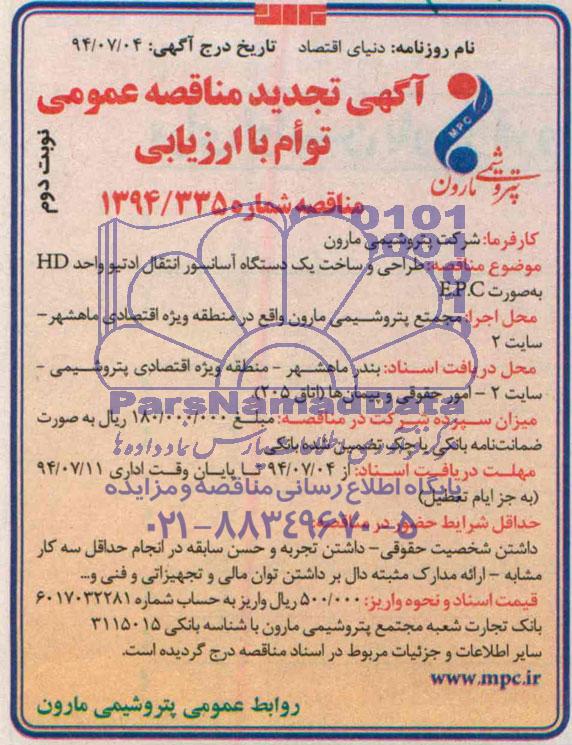 نام روزنامه: دنیای اقتصاد تاریخ درج آگهی: ۹۴/۰۷/۰۴
آگهی تجدید مناقصه عمومی
توأم با ارزیابی
نوبت دوم
MPC
پتروشیمی مارون
مناقصه شماره ۱۳۹۴/۳۳۵
کارفرما: شرکت پتروشیمی مارون
موضوع مناقصه: طراحی و ساخت یک دستگاه آسانسور انتقال ادتیو واحد HD
به‌صورت E.P.C
محل اجرا: مجمتع پتروشیمی مارون واقع در منطقه ویژه اقتصادی ماهشهر–
سایت ۲
محل دریافت اسناد: بندر ماهشهر – منطقه ویژه اقتصادی پتروشیمی –
سایت ۲ – امور حقوقی و پیمان‌ها (اتاق ۲۰۵)
میزان سپرده شرکت در مناقصه: مبلغ ۱۸۰/۰۰۰/۰۰۰ ریال به صورت
ضمانت‌نامه بانکی یا چک تضمین شده بانکی
مهلت دریافت اسناد: از ۹۴/۰۷/۰۴ تا پایان وقت اداری ۹۴/۰۷/۱۱
(به جز ایام تعطیل)
حداقل شرایط حضور در مناقصه:
داشتن شخصیت حقوقی– داشتن تجربه و حسن سابقه در انجام حداقل سه کار
مشابه – ارائه مدارک مثبته دال بر داشتن توان مالی و تجهیزاتی و فنی و...
قیمت اسناد و نحوه واریز: ۵۰۰/۰۰۰ ریال واریز به حساب شماره ۶۰۱۷۰۳۲۲۸۱
بانک تجارت شعبه مجتمع پتروشیمی مارون با شناسه بانکی ۳۱۱۵۰۱۵
سایر اطلاعات و جزئیات مربوط در اسناد مناقصه درج گردیده است.
www.mpc.ir
روابط عمومی پتروشیمی مارون
ParsNamadData
پایگاه اطلاع رسانی مناقصه و مزایده
۰۲۱–۸۸۳۴۹۶۷۰–۵